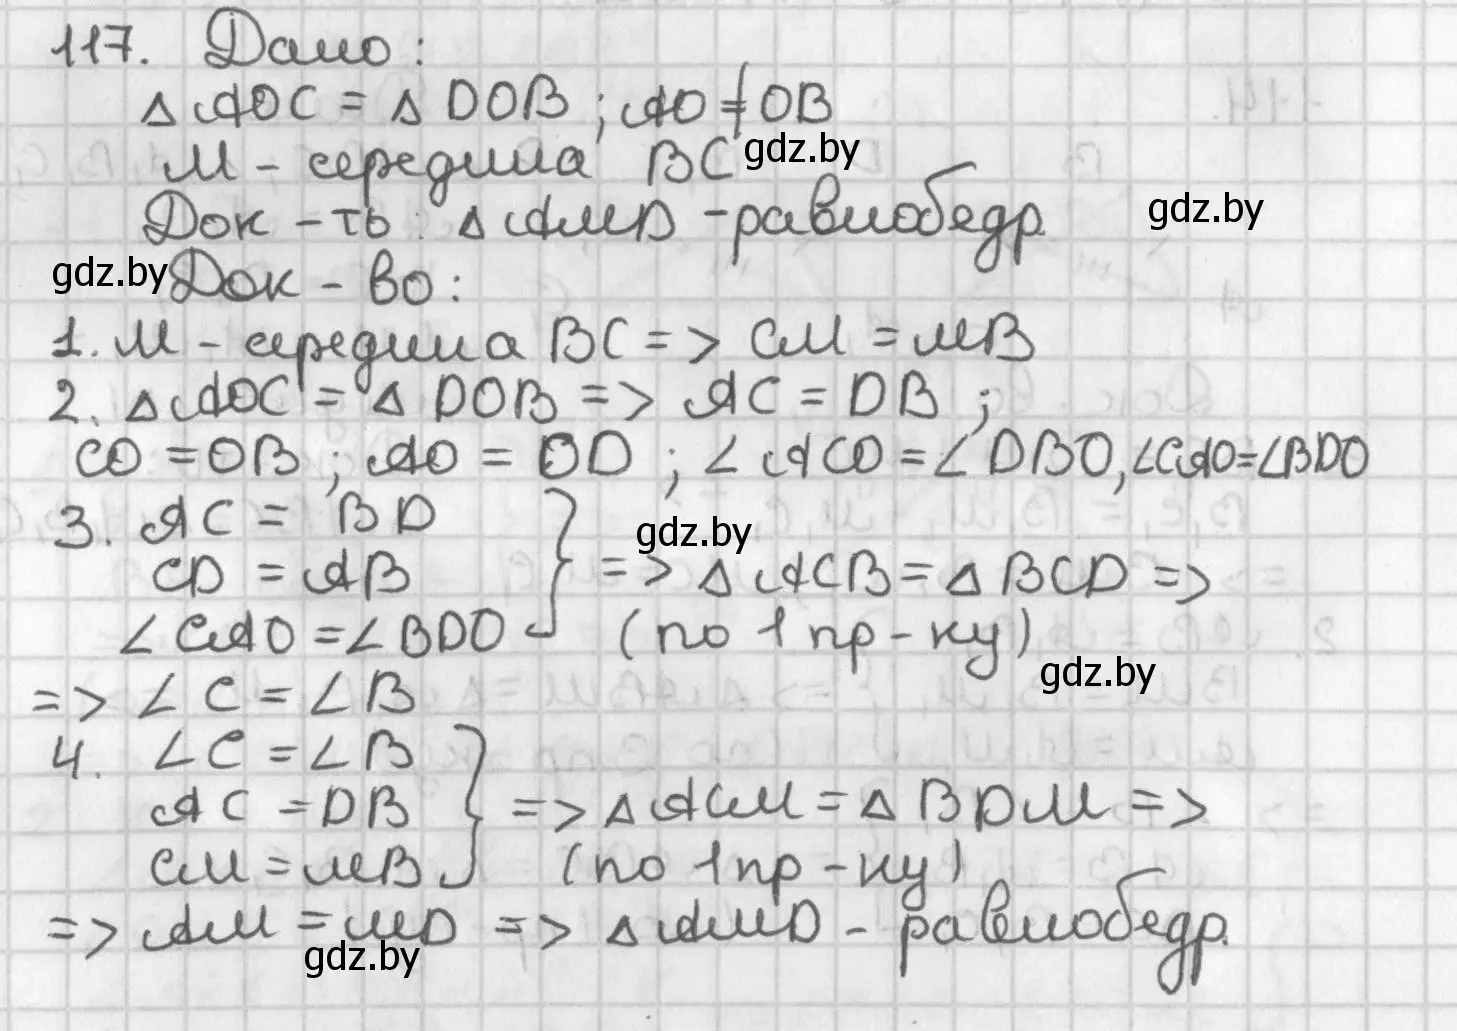 117. Дано:
△ AOC = △ DOB ; AO ≠ OB
M - середина BC
gdz.by
Док - ть : △ AMD - равнобедр.
gdz.by
gdz.by
Док - во :
1. M - середина BC => CM = MB
2. △ AOC = △ DOB => AC = DB ;
CO = OB ; AO = OD ; ∠ ACO = ∠ DBO, ∠CAO = ∠BDO
3. AC = BD
gdz.by
CD = AB } => △ ACB = △ BCD =>
∠ CAO = ∠ BDO (по 1 пр - ку)
gdz.by
=> ∠ C = ∠ B
4. ∠ C = ∠ B
AC = DB } => △ ACM = △ BDM =>
CM = MB (по 1 пр - ку)
=> AM = MD => △ AMD - равнобедр.
gdz.by